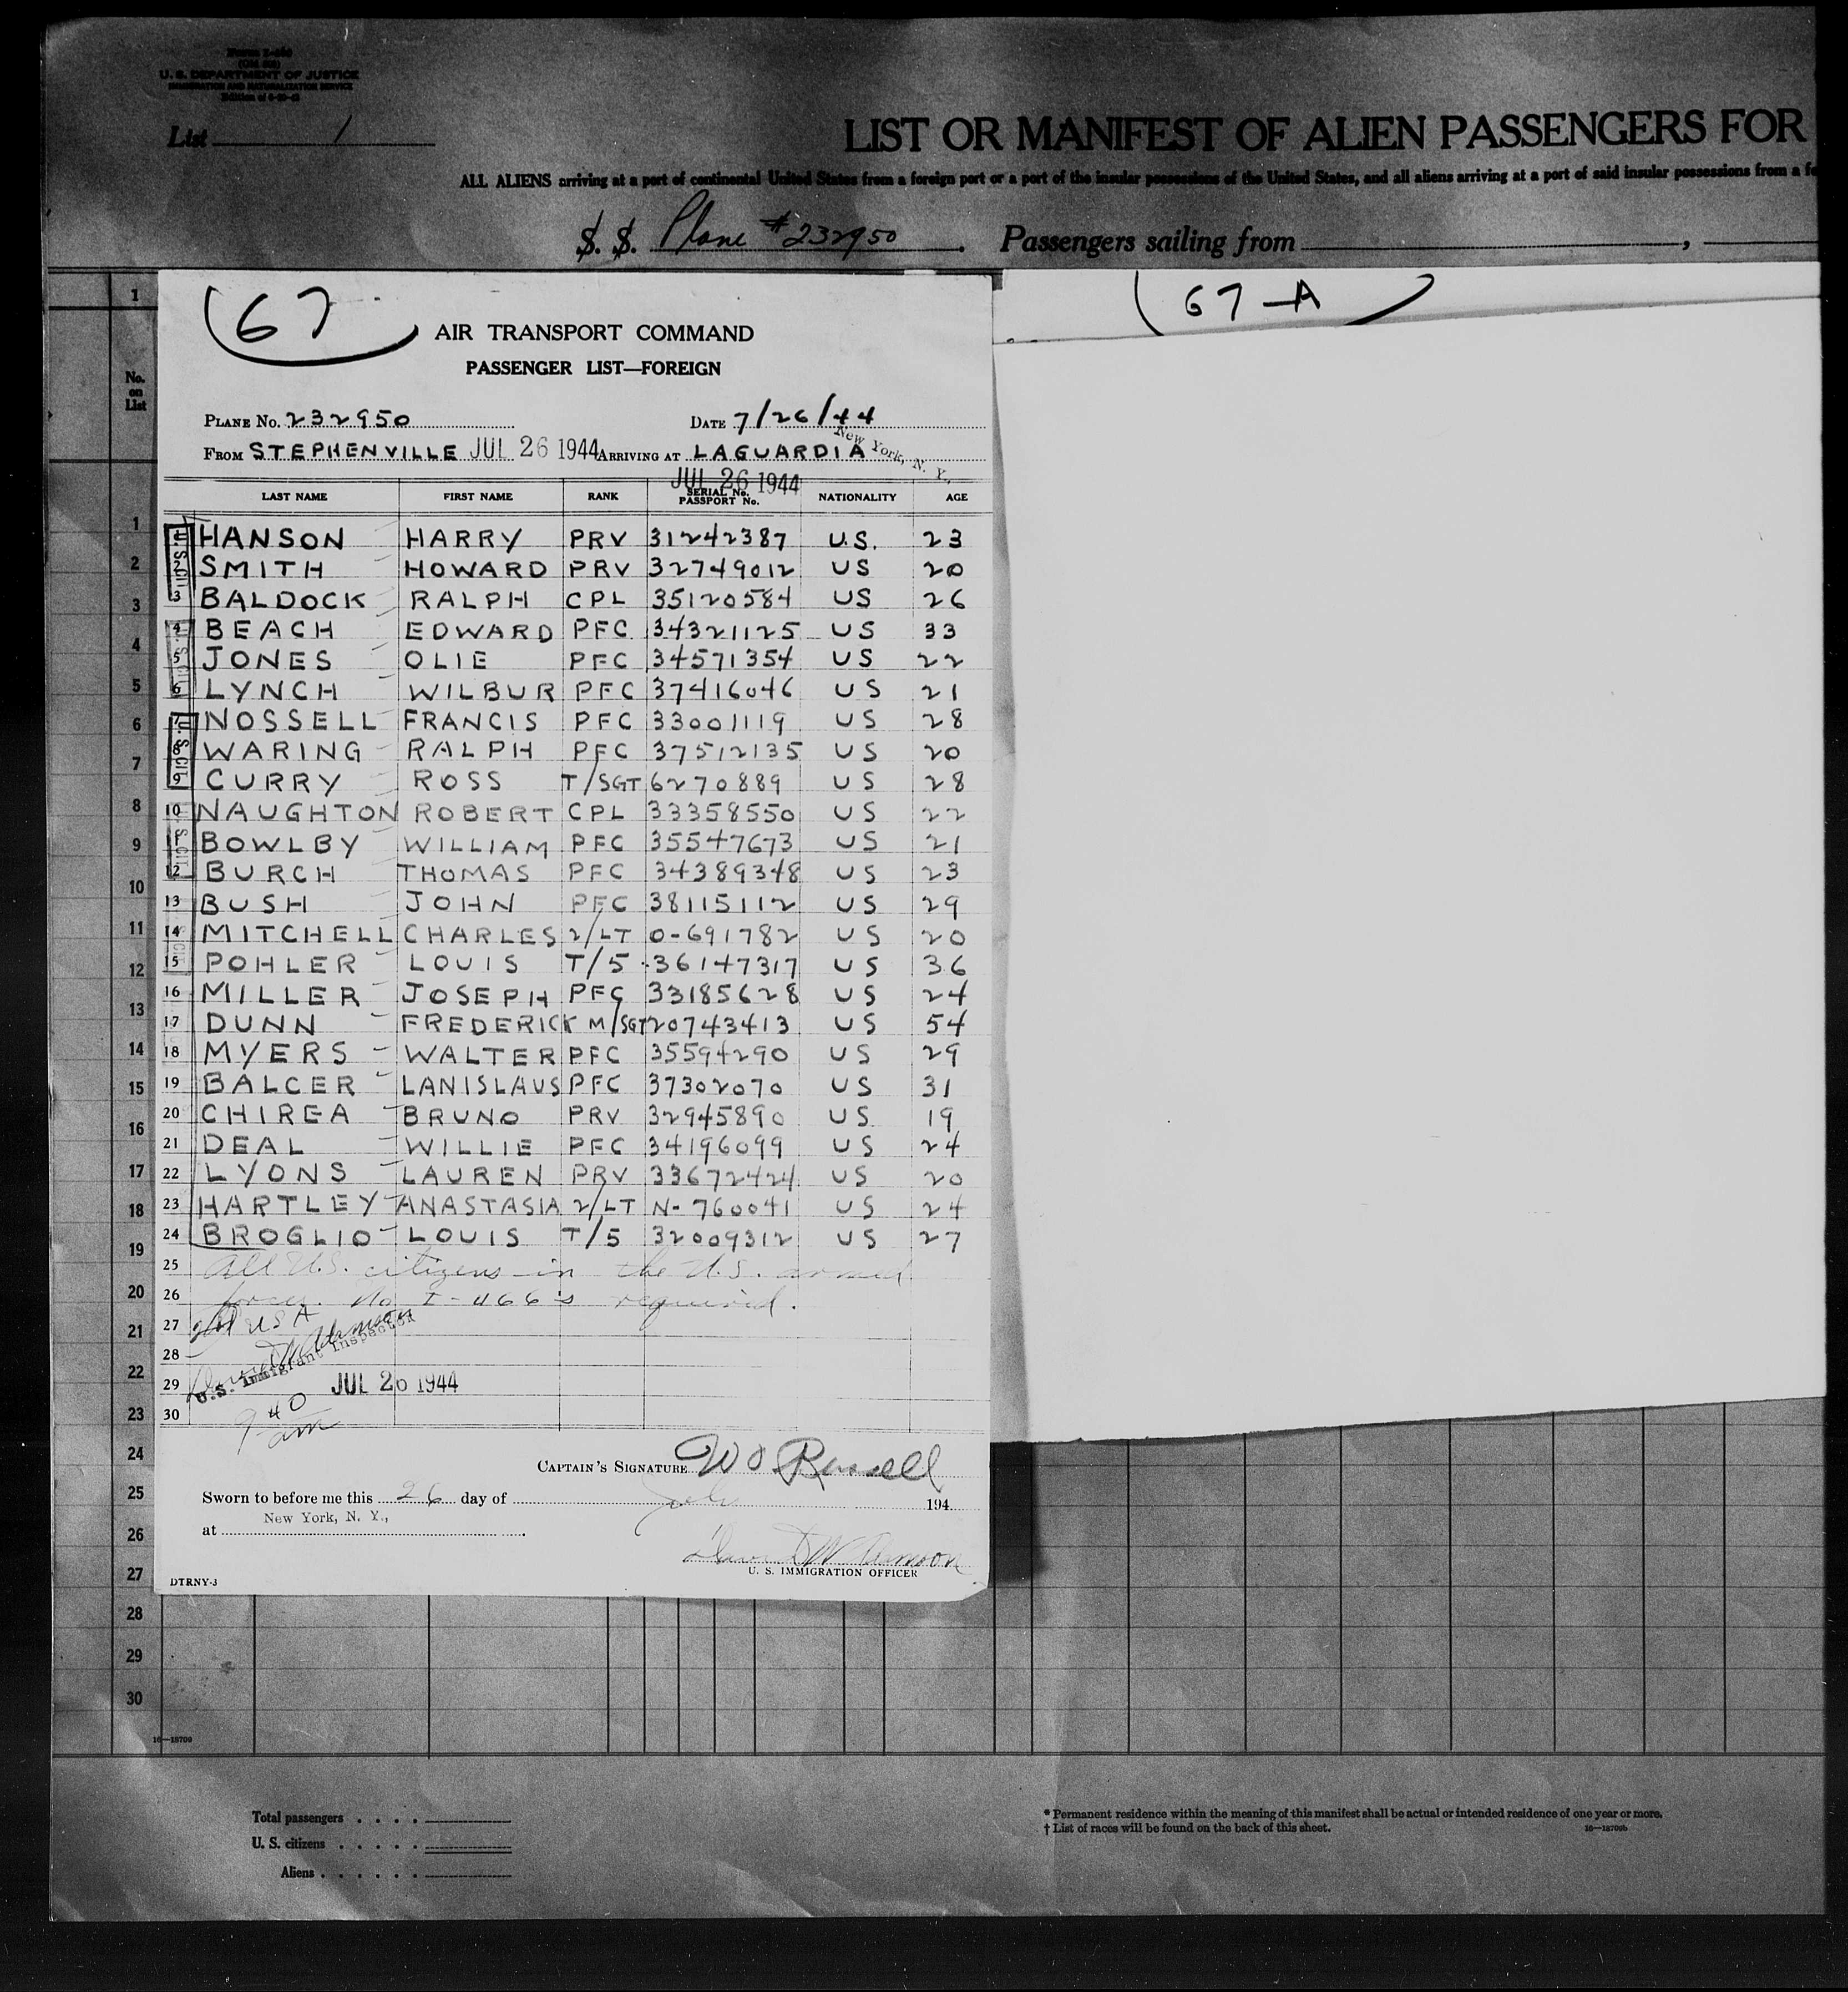 Form I-466
U. S. DEPARTMENT OF JUSTICE
IMMIGRATION AND NATURALIZATION SERVICE
List 1
LIST OR MANIFEST OF ALIEN PASSENGERS FOR
ALL ALIENS arriving at a port of continental United States from a foreign port or a port of the insular possessions of the United States, and all aliens arriving at a port of said insular possessions from a fo
S. S. Plane #232950. Passengers sailing from ,
(67) (67-A)
AIR TRANSPORT COMMAND
PASSENGER LIST—FOREIGN
No. on List
PLANE No. 232950 DATE 7/26/44
FROM STEPHENVILLE JUL 26 1944 ARRIVING AT LAGUARDIA New York, N. Y.,
JUL 26 1944
LAST NAME FIRST NAME RANK SERIAL No. PASSPORT No. NATIONALITY AGE
1 HANSON HARRY PRV 31242387 U.S. 23
2 SMITH HOWARD PRV 32749012 US 20
3 BALDOCK RALPH CPL 35120584 US 26
4 BEACH EDWARD PFC 34321125 US 33
5 JONES OLIE PFC 34571354 US 22
6 LYNCH WILBUR PFC 37416046 US 21
7 NOSSELL FRANCIS PFC 33001119 US 28
8 WARING RALPH PFC 37512135 US 20
9 CURRY ROSS T/SGT 6270889 US 28
10 NAUGHTON ROBERT CPL 33358550 US 22
11 BOWLBY WILLIAM PFC 35547673 US 21
12 BURCH THOMAS PFC 34389348 US 23
13 BUSH JOHN PFC 38115112 US 29
14 MITCHELL CHARLES 2/LT O-691782 US 20
15 POHLER LOUIS T/5 36147317 US 36
16 MILLER JOSEPH PFC 33185628 US 24
17 DUNN FREDERICK M/SGT 20743413 US 54
18 MYERS WALTER PFC 35594290 US 29
19 BALCER LANISLAUS PFC 37302070 US 31
20 CHIREA BRUNO PRV 32945890 US 19
21 DEAL WILLIE PFC 34196099 US 24
22 LYONS LAUREN PRV 33672424 US 20
23 HARTLEY ANASTASIA 2/LT N-760041 US 24
24 BROGLIO LOUIS T/5 32009312 US 27
25 All U.S. citizens in the U.S. armed
26 forces. No I-466's required.
27 USA
28
29 U.S. Immigrant Inspector JUL 26 1944
30 9 40 am
CAPTAIN'S SIGNATURE W O Russell
Sworn to before me this 26 day of July 194
at New York, N. Y.,
U. S. IMMIGRATION OFFICER
DTRNY-3
1
2
3
4
5
6
7
8
9
10
11
12
13
14
15
16
17
18
19
20
21
22
23
24
25
26
27
28
29
30
16—18709
Total passengers . . . .
U. S. citizens . . . . .
Aliens . . . . . .
* Permanent residence within the meaning of this manifest shall be actual or intended residence of one year or more.
† List of races will be found on the back of this sheet. 16—18709b